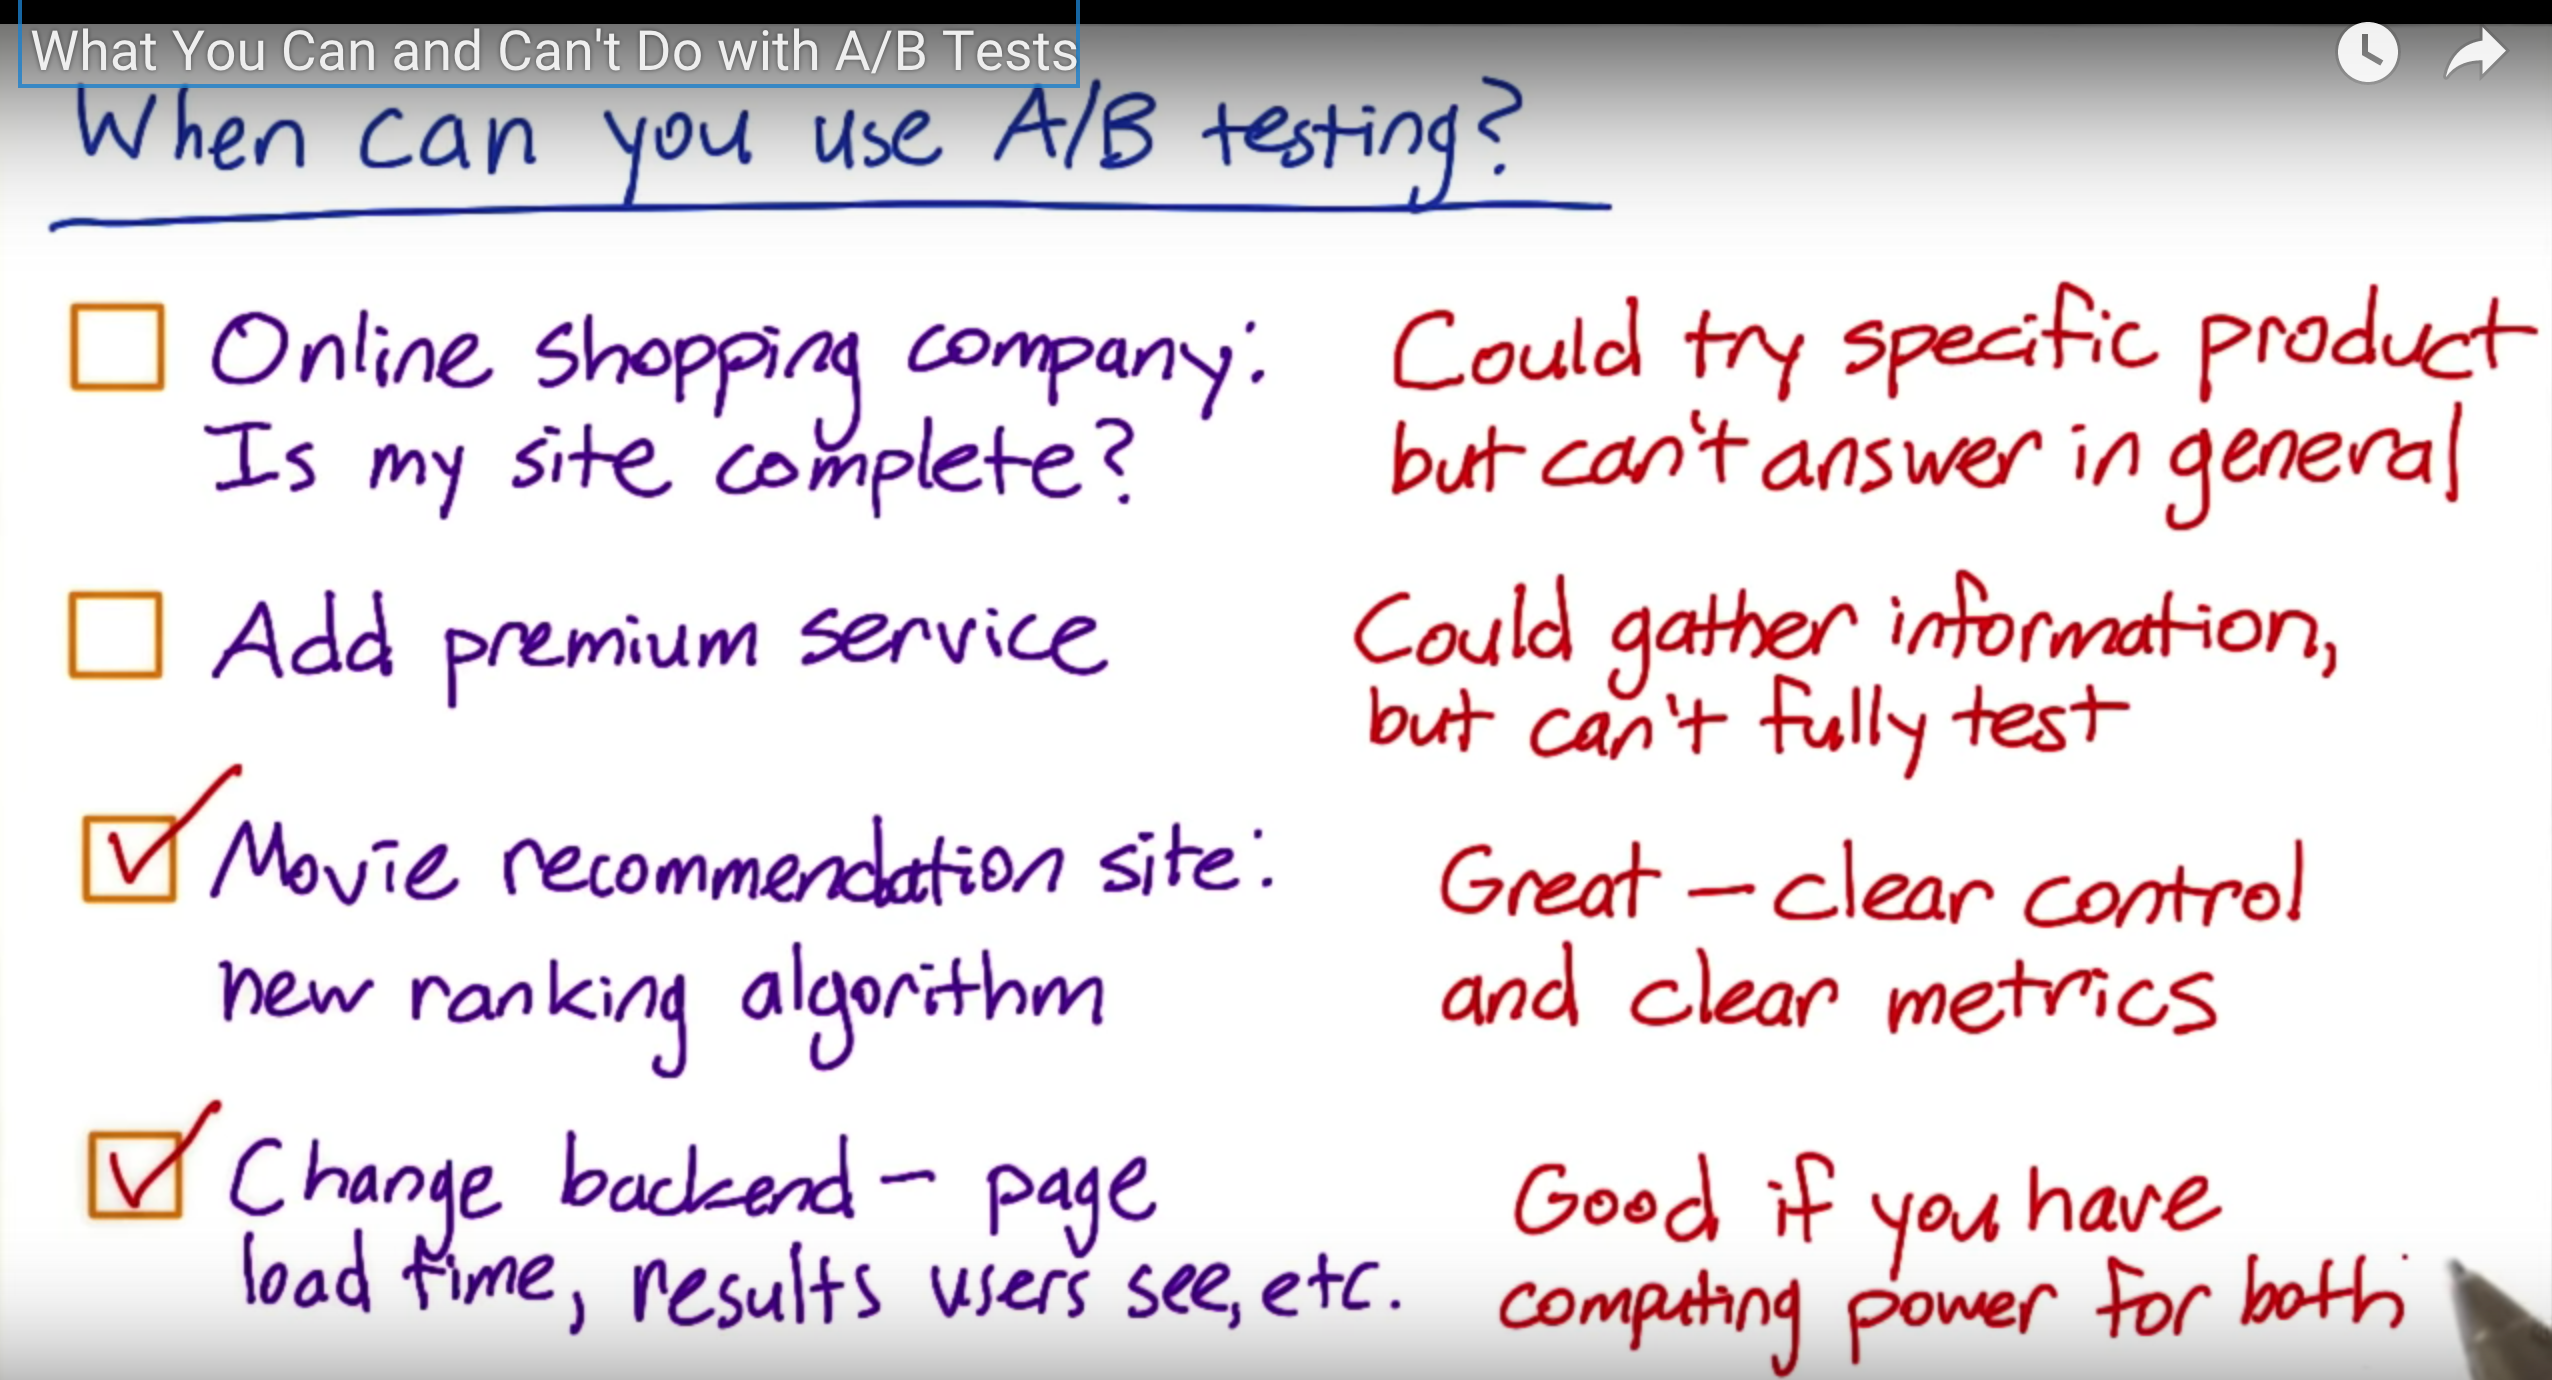 What You Can and Can't Do with A/B Tests
When can you use A/B testing?
Online shopping company:
Is my site complete?
Could try specific product
but can't answer in general
Add premium service
Could gather information,
but can't fully test
Movie recommendation site:
new ranking algorithm
Great – clear control
and clear metrics
Change backend – page
load time, results users see, etc.
Good if you have
computing power for both